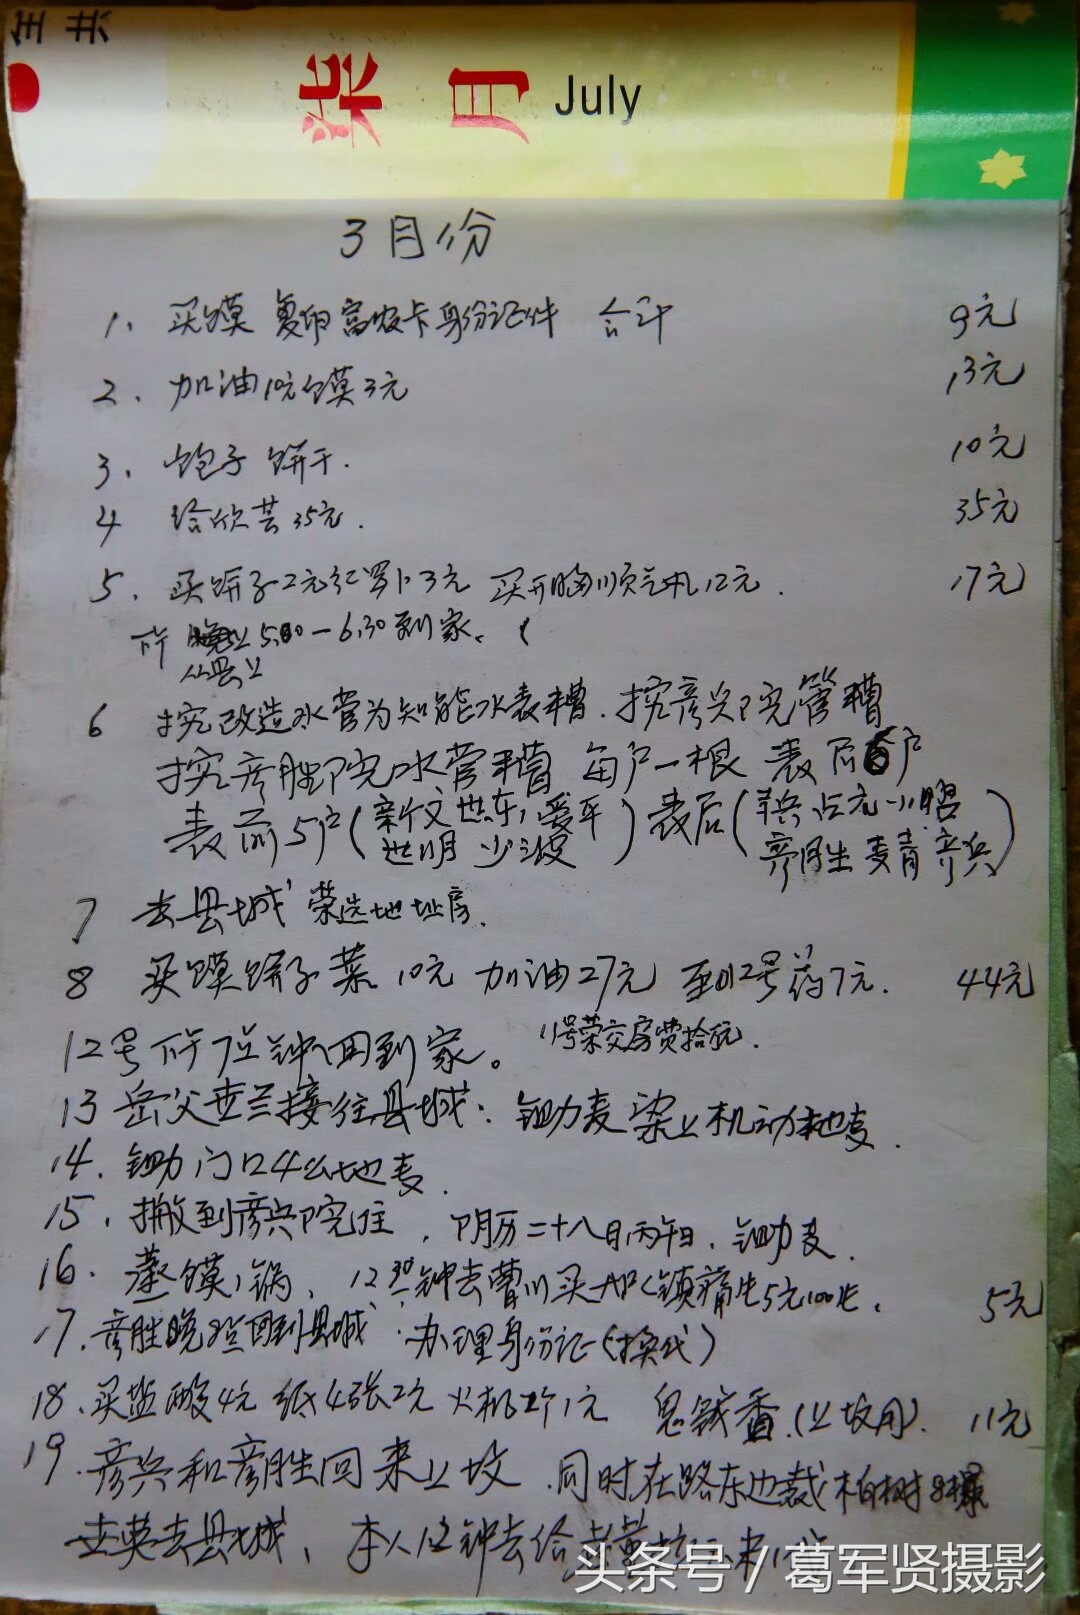 柒月 July
3月份
1、买馍 复印富农卡身份证件 合计 9元
2、加油10元馍3元 13元
3、饱子 饼干. 10元
4 给欣芸35元. 35元
5、买饼子2元红罗卜3元 买开胸顺气丸12元. 17元
下午 5.00—6.30到家、
6 挖改造水管为知能水表槽.挖彦兴院管槽
挖彦胜院水管槽 每户一根 表后6户
表前5户(新文 世东 爱平
世月 少波)表后(占元 小
彦胜 麦青 彦兵)
7 去县城 荣选地址房.
8 买馍饼子菜10元 加油27元 至12号药7元. 44元
12号下午7点钟回到家。 11号荣交房费拾元.
13 岳父世兰接往县城: 锄麦染上机动地麦.
14.锄门口4么地麦.
15、搬到彦兴院住,阴历二十八日丙午日.锄麦.
16.蒸馍1锅、12 30钟去曹川买 镇痛片5元100片. 5元
17.彦胜晚 回到县城 办理身份证(换代)
18.买盐酸4元 纸4张2元 火机2个1元 鬼钱香(上坟用). 11元
19.彦兴和彦胜回来上坟.同时在路东边裁柏树8棵
世英去县城、本人12钟去给
头条号 / 葛军贤摄影